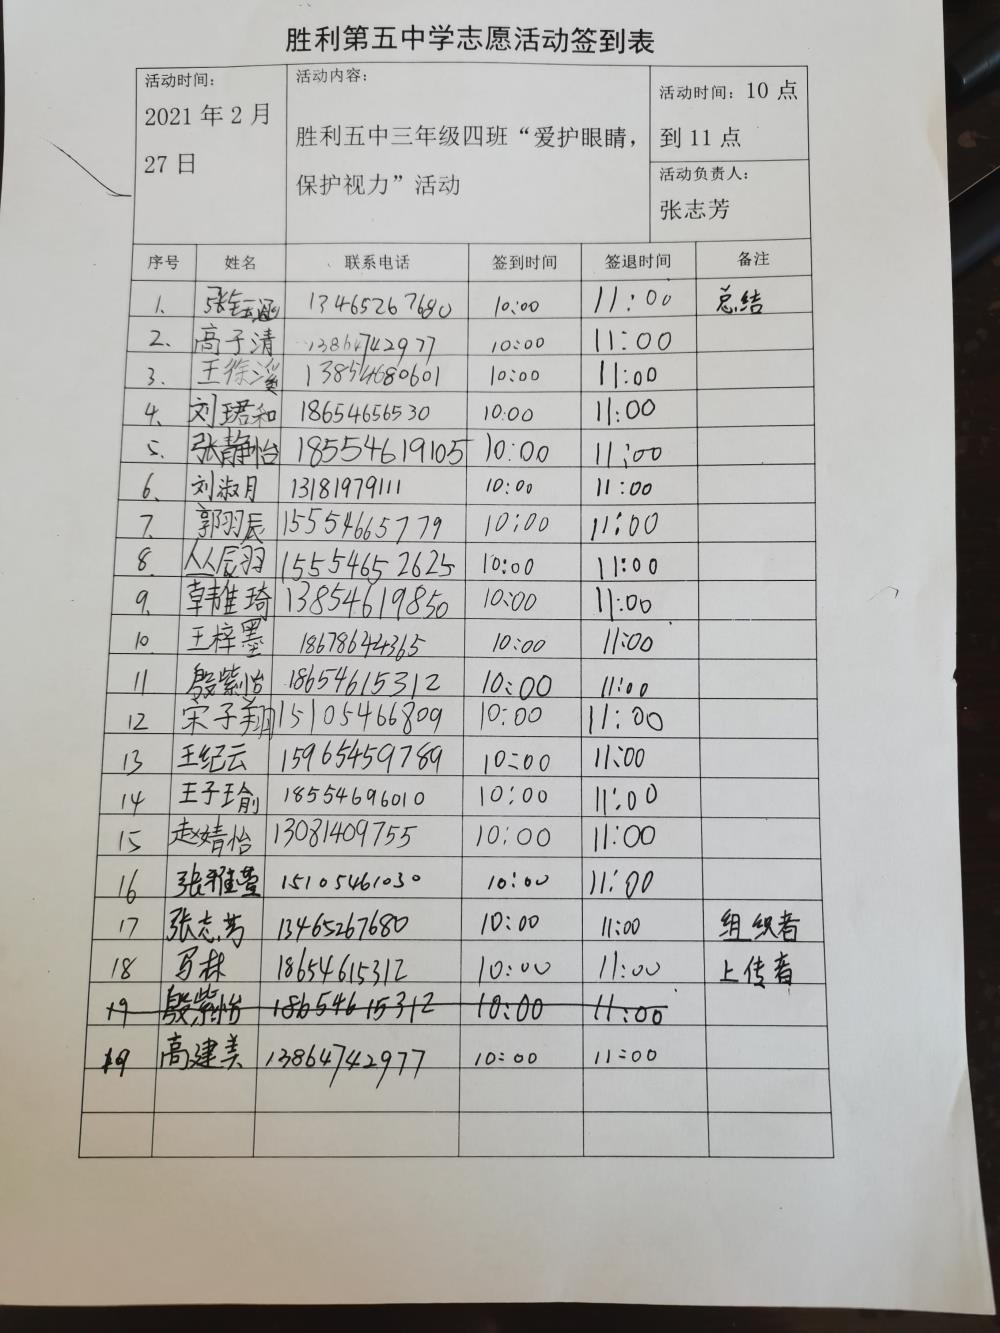 胜利第五中学志愿活动签到表
活动时间：
2021 年 2 月
27 日
活动内容：
胜利五中三年级四班“爱护眼睛，
保护视力”活动
活动时间：10 点
到 11 点
活动负责人：
张志芳
序号 姓名 联系电话 签到时间 签退时间 备注
1. 张钰涵 13465267680 10:00 11:00 总结
2. 高子清 13864742977 10:00 11:00
3. 王徐溪 13854680601 10:00 11:00
4. 刘珺和 18654656530 10:00 11:00
5. 张静怡 18554619105 10:00 11:00
6. 刘淑月 13181979111 10:00 11:00
7. 郭羽辰 15554665779 10:00 11:00
8. 从辰羽 15554652625 10:00 11:00
9. 韩雅琦 13854619850 10:00 11:00
10. 王梓墨 18678644365 10:00 11:00
11 殷紫怡 18654615312 10:00 11:00
12 宋子翔 15105466809 10:00 11:00
13 王纪云 15965459789 10:00 11:00
14 王子瑜 18554696010 10:00 11:00
15 赵婧怡 13081409755 10:00 11:00
16 张雅萱 15105461030 10:00 11:00
17 张志芳 13465267680 10:00 11:00 组织者
18 马林 18654615312 10:00 11:00 上传者
19 殷紫怡 18654615312 10:00 11:00
19 高建美 13864742977 10:00 11:00